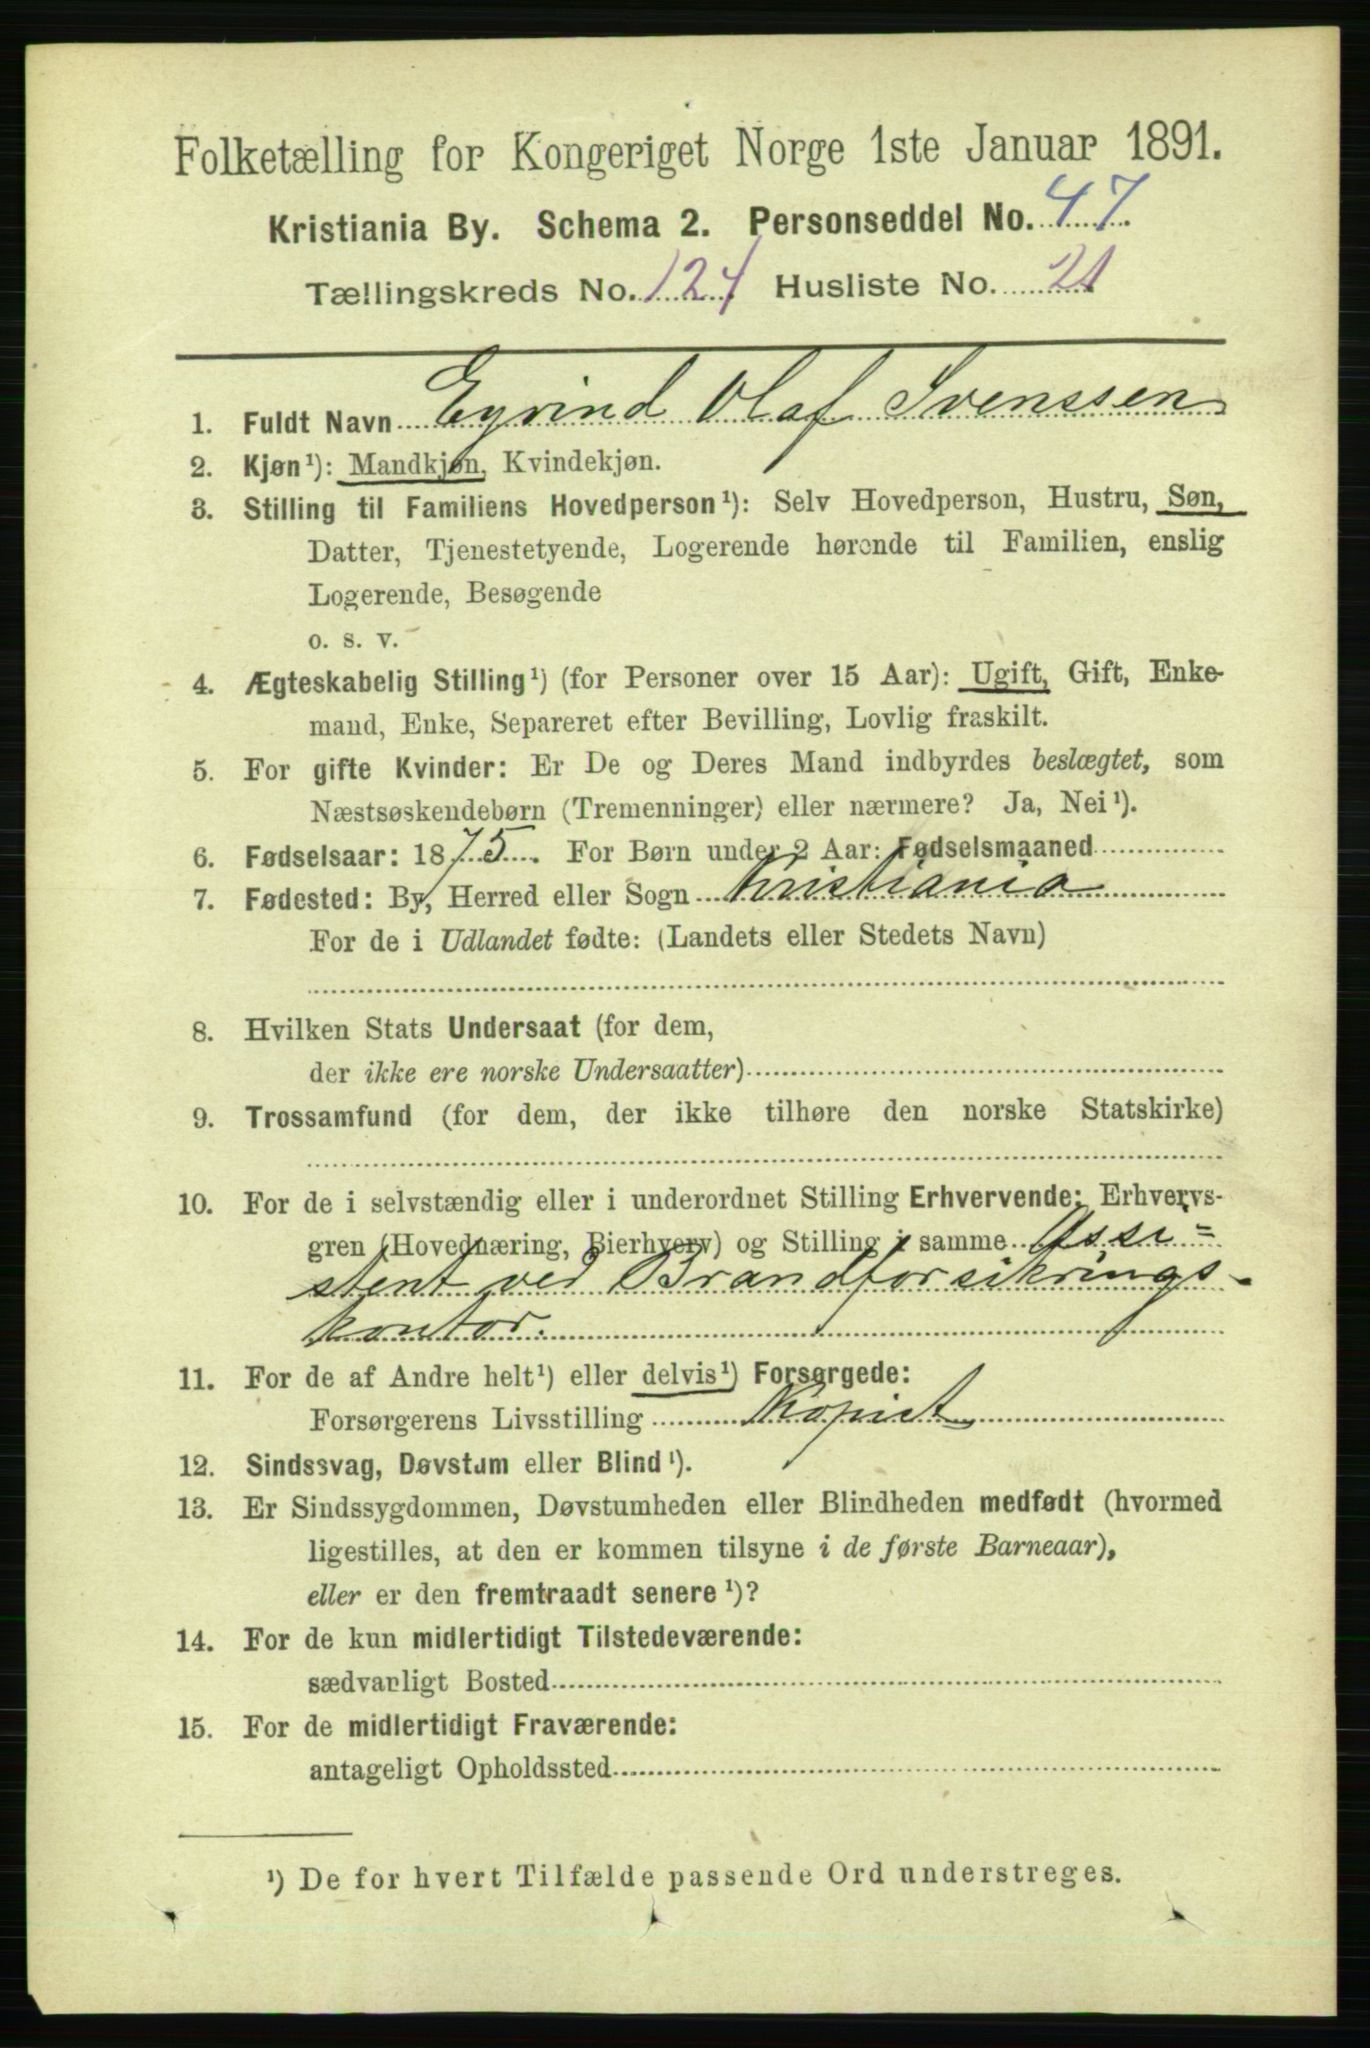 Folketælling for Kongeriget Norge 1ste Januar 1891.
Kristiania By. Schema 2. Personseddel No. 47.
Tællingskreds No. 124 Husliste No. 21
1. Fuldt Navn Eyvind Olaf Svenssen
2. Kjøn¹): Mandkjøn, Kvindekjøn.
3. Stilling til Familiens Hovedperson¹): Selv Hovedperson, Hustru, Søn,
Datter, Tjenestetyende, Logerende hørende til Familien, enslig
Logerende, Besøgende
o. s. v.
4. Ægteskabelig Stilling¹) (for Personer over 15 Aar): Ugift, Gift, Enke-
mand, Enke, Separeret efter Bevilling, Lovlig fraskilt.
5. For gifte Kvinder: Er De og Deres Mand indbyrdes beslægtet, som
Næstsøskendebørn (Tremenninger) eller nærmere? Ja, Nei¹).
6. Fødselsaar: 1875. For Børn under 2 Aar: Fødselsmaaned
7. Fødested: By, Herred eller Sogn Kristiania
For de i Udlandet fødte: (Landets eller Stedets Navn)
8. Hvilken Stats Undersaat (for dem,
der ikke ere norske Undersaatter)
9. Trossamfund (for dem, der ikke tilhøre den norske Statskirke)
10. For de i selvstændig eller i underordnet Stilling Erhvervende: Erhvervs-
gren (Hovednæring, Bierhverv) og Stilling i samme Assi=
stent ved Brandforsikrings-
kontor.
11. For de af Andre helt¹) eller delvis¹) Forsørgede:
Forsørgerens Livsstilling Kopist
12. Sindssvag, Døvstum eller Blind¹).
13. Er Sindssygdommen, Døvstumheden eller Blindheden medfødt (hvormed
ligestilles, at den er kommen tilsyne i de første Barneaar),
eller er den fremtraadt senere¹)?
14. For de kun midlertidigt Tilstedeværende:
sædvanligt Bosted
15. For de midlertidigt Fraværende:
antageligt Opholdssted
¹) De for hvert Tilfælde passende Ord understreges.